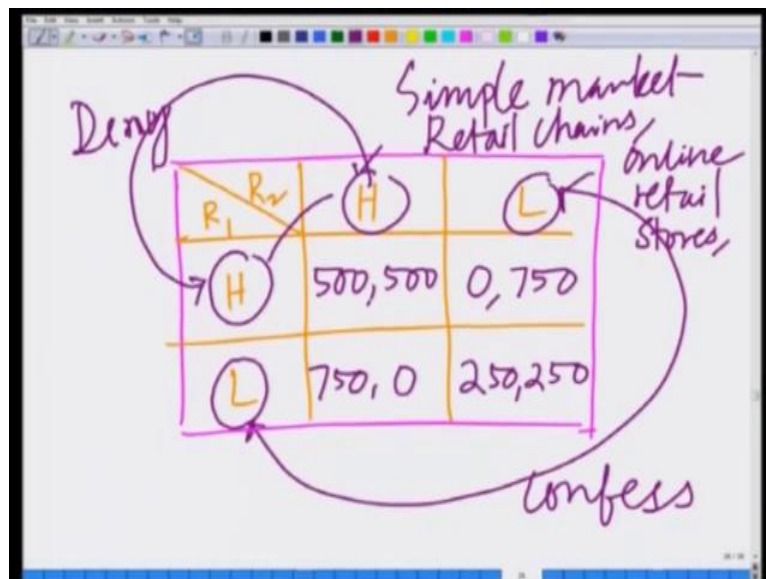 Simple market
Retail chains,
Online
retail
stores,
Deny
R1 R2 H L
H 500,500 0,750
L 750,0 250,250
Confess